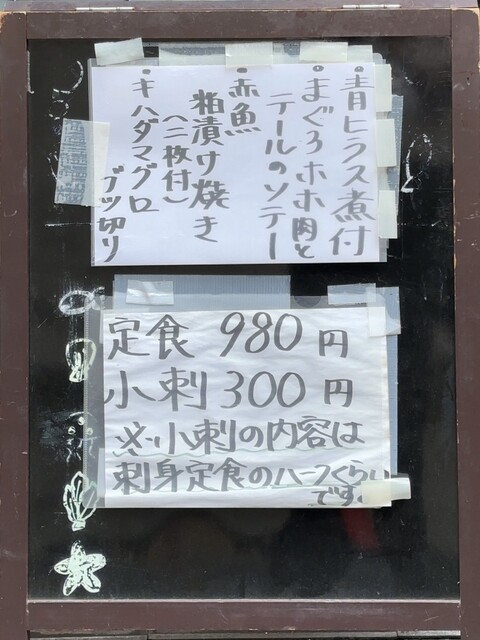 ・青ヒラス煮付
・まぐろホホ肉と
テールのソテー
・赤魚
粕漬け焼き
(二枚付)
・キハダマグロ
ブツ切り
定食 980円
小刺 300円
※小刺の内容は
刺身定食のハーフくらい
です。